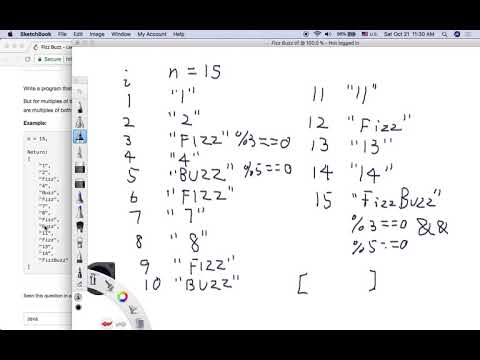 SketchBook File Edit View Image Window Account Help
98% Sat Oct 21 11:30 AM
Fizz Buzz
Write a program that
But for multiples of
are multiples of both
Example:
n = 15,
Return:
[
"1",
"2",
"Fizz",
"4",
"Buzz",
"Fizz",
"7",
"8",
"Fizz",
"Buzz",
"11",
"Fizz",
"13",
"14",
"FizzBuzz"
]
Seen this question in a
Java
i n = 15
1 "1"
2 "2"
3 "FIZZ" %3==0
4 "4"
5 "BUZZ" %5==0
6 "FIZZ"
7 "7"
8 "8"
9 "FIZZ"
10 "BUZZ"
11 "11"
12 "Fizz"
13 "13"
14 "14"
15 "FizzBuzz"
%3==0 &&
%5==0
[ ]